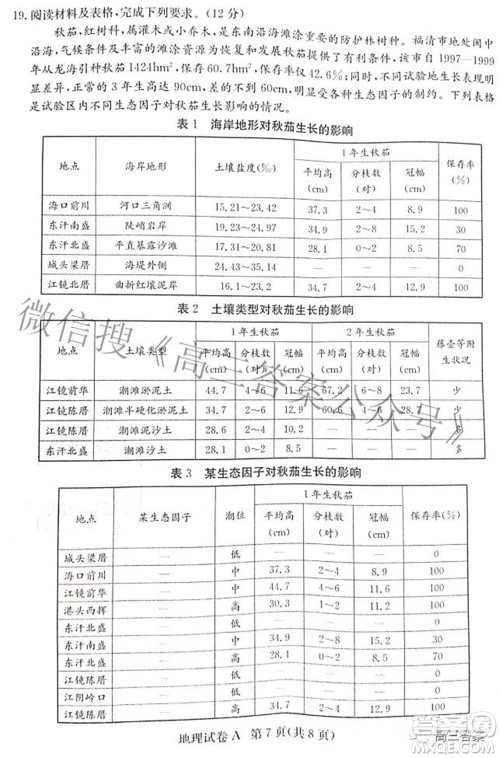 19. 阅读材料及表格,完成下列要求。(12 分)
秋茄,红树科,属灌木或小乔木,是东南沿海滩涂重要的防护林树种。福清市地处闽中
沿海,气候条件及丰富的滩涂资源为恢复和发展秋茄提供了有利条件,该市自1997—1999
年从龙海引种秋茄1424hm²,保存60.7hm²,保存率仅42.6%;同时,不同试验地生长表现明
显差异,正常的3年生高达90cm,差的不到60cm,明显受各种生态因子的制约。下列表格
是试验区内不同生态因子对秋茄生长影响的情况。
表 1 海岸地形对秋茄生长的影响
地点 海岸地形 土壤盐度(‰) 1年生秋茄 保存率(%)
平均高(cm) 分枝数(对) 冠幅(cm)
海口前川 河口三角洲 15.21~23.42 37.3 2~4 8.9 100
东汗南盛 陡峭岩岸 19.23~24.97 34.9 2~8 15.2 30
东汗北盛 平直暴露沙滩 17.31~20.81 28.1 0~2 8.5 70
城头梁厝 海堤外侧 24.43~35.14 — — — 0
江镜北厝 曲折红壤泥岸 16.1~23.2 34.7 2~4 12.9 100
表 2 土壤类型对秋茄生长的影响
地点 土壤类型 1年生秋茄 2年生秋茄 藤壶等附生状况
平均高(cm) 分枝数(对) 冠幅(cm) 平均高(cm) 分枝数(对) 冠幅(cm)
江镜前华 潮滩淤泥土 44.7 4~6 11.6 67.2 6~8 23.7 少
江镜陈厝 潮滩半硬化淤泥土 34.7 2~6 12.9 60.6 4~8 28.7 少
江镜陈厝 潮滩沙泥土 28.6 2~4 10.2 — — — 多
东汗北盛 潮滩沙土 28.1 0~2 8.5 — — — 多
表 3 某生态因子对秋茄生长的影响
地点 某生态因子 潮位 1年生秋茄 保存率(%)
平均高(cm) 分枝数(对) 冠幅(cm)
城头梁厝 — 低 — — — 0
海口前川 — 中 37.3 2~4 8.9 100
江镜前华 — 中 44.7 4~6 11.6 100
港头西挥 — 高 30.3 1~2 11.2 100
东汗北盛 — 低 — — — 0
东汗南盛 — 中 34.9 2~8 15.2 30
东汗北盛 — 高 28.1 0~2 8.5 70
江镜陈厝 — 低 — — — 0
江阴岭口 — 中 — — — 0
江镜陈厝 — 高 34.7 2~4 12.9 100
地理试卷 A 第 7 页(共 8 页)
微信搜《高三答案公众号》
高三答案